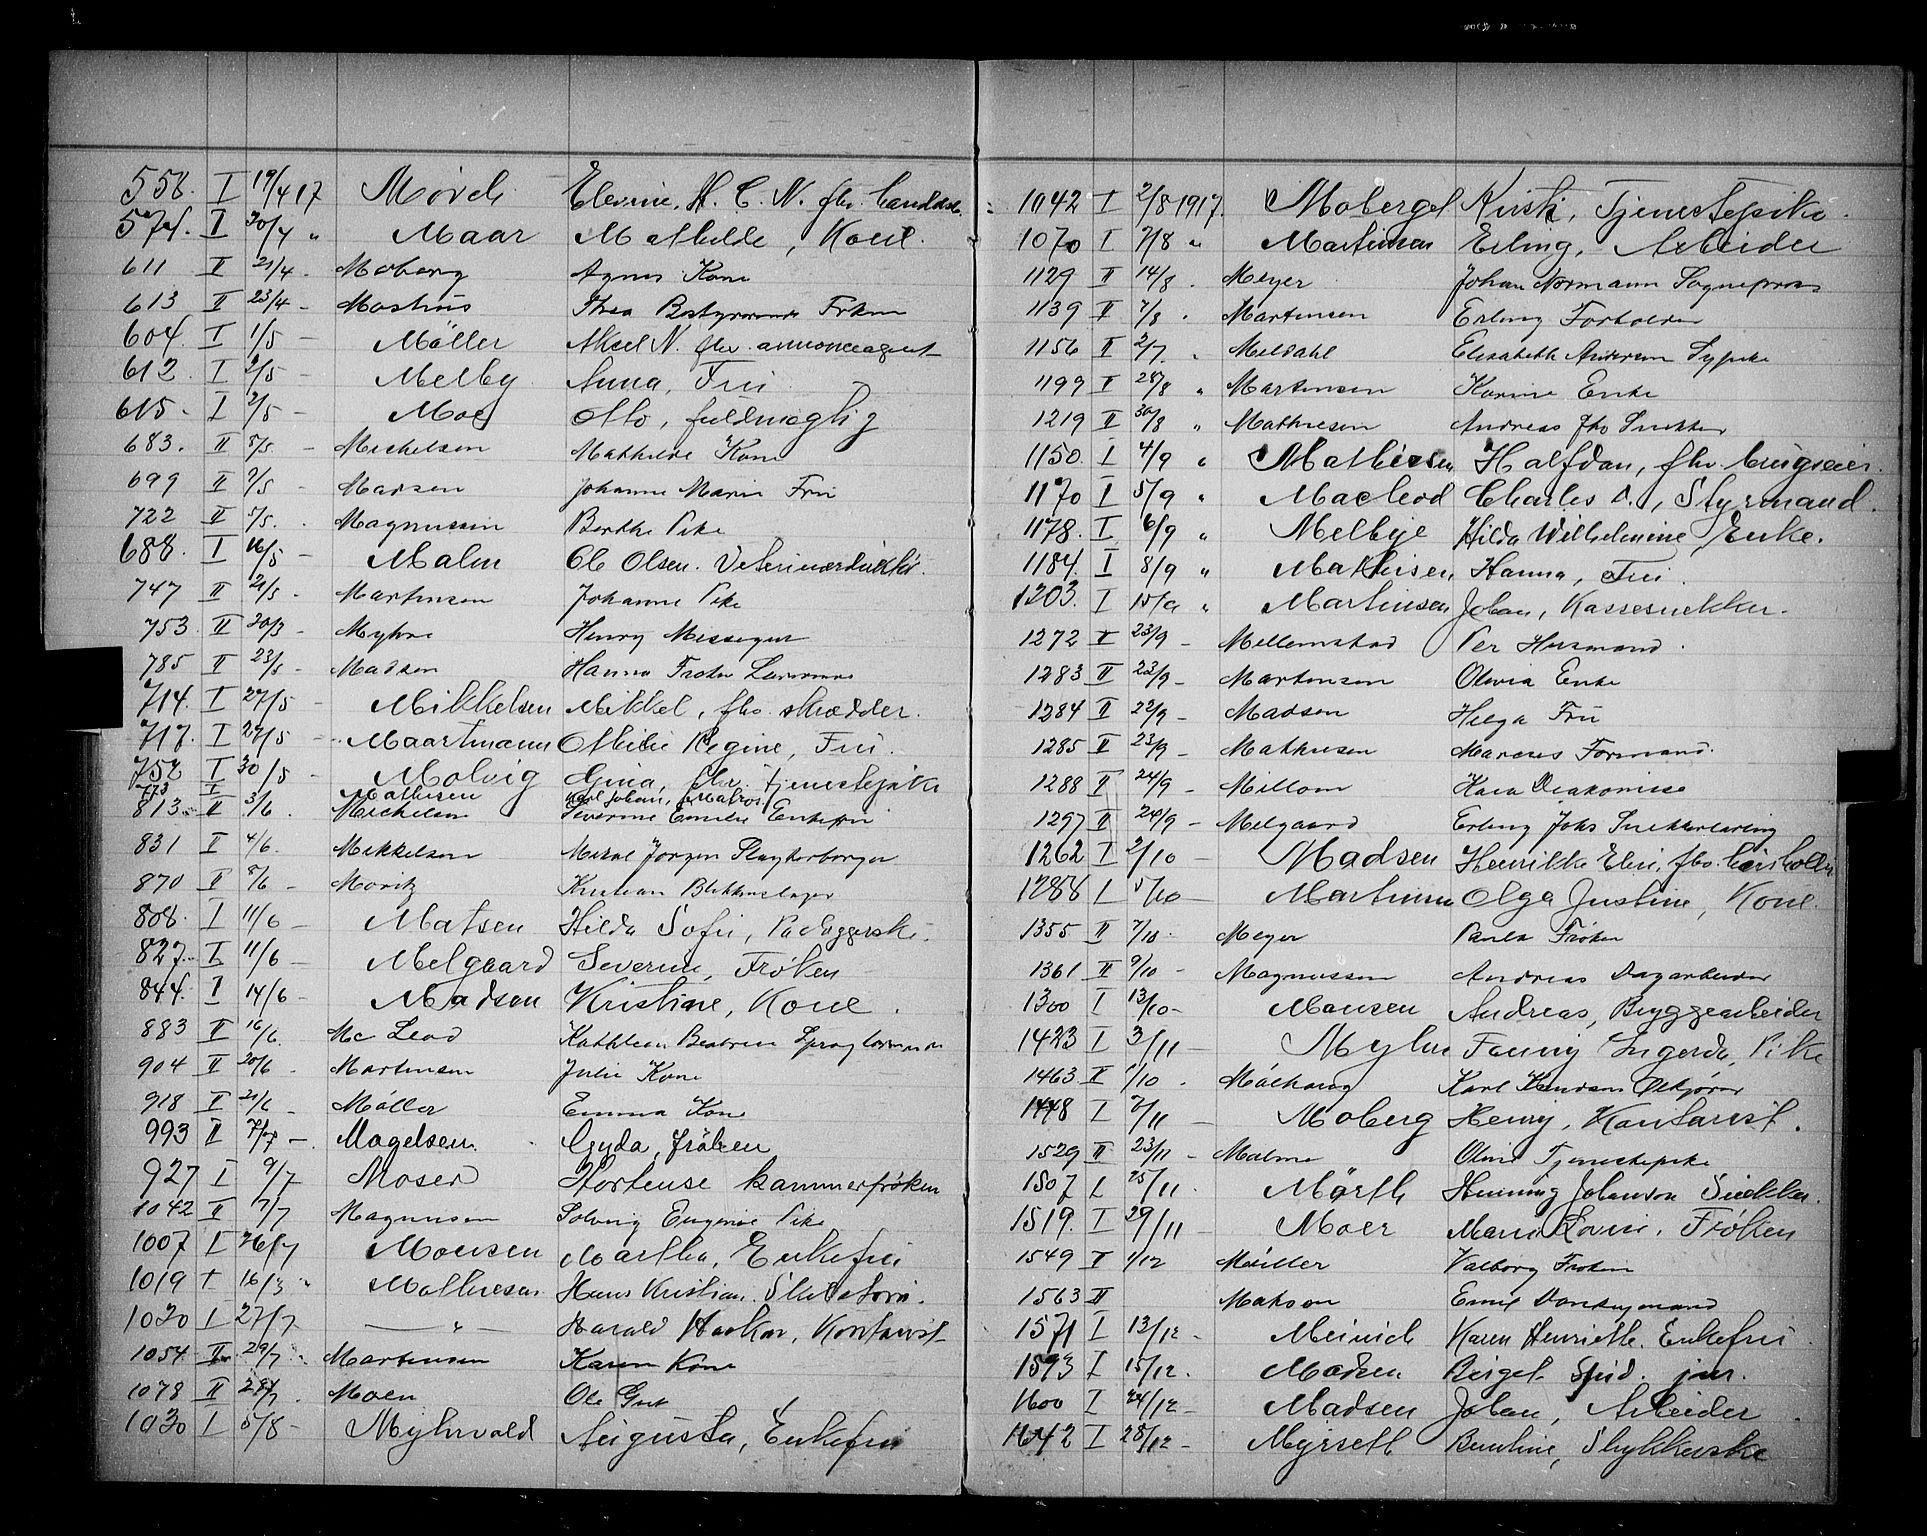 558. I 19/4 17 Mörch Elevine, H. C. N. fhv.
574. I 30/4 " Maar Mathilde, Kone.
611 II 21/4 . Moberg Agnes Kone
613 II 23/4 - Mostnus Thea Bestyrerinde Frken
604. I 1/5 - Möller Aksel N. fhv. annonceagent
612. I 2/5 - Melby Anna, Fru
615. I 2/5 - Moe Otto, fuldmægtig
683. II 5/5 - Mechelsen Mathilde Kone
699 II 7/5 - Marsen Johanne Marie Fru
722 II 5/5. . Magnussen Berthe Pike
688. I 16/5 - Malm Ole Olsen. Veterinærdirektör.
747 II 21/5 . Martensen Johanne Pike
753. II 20/3 - Myhre Henry Messegut
785 II 23/5 - Madsen Hanna Frøken Lærerinde
714. I 27/5 - Mikkelsen Mikkel, fhv. skrædder.
717. I 27/5 - Maartmann Regine, Fru.
752 I 30/5 - Molvig Gina, fhv. tjenestepike
773 I Mathisen Karl Johan, Matros
813. II 3/6. Mechelsen Severine Emelie Enkefru
831 II 4/6. Mekkelsen Mekal Jørgen Slagterborger
870 II 8/6 - Moritz Kristian Blikkenslager
808. I 11/6 - Matsen Hilda Sofie,
827. I 11/6 - Melgaard Severine, Frøken
844. I 14/6 - Madsen Kristine, Kone.
883 II 16/6. Mc Leod Kathleen Beatrice Sproglærerinde
904 II 20/6 . Martensen Julie Kone
918 II 21/6 - Møller Emma Kone
993 II 7/7 -. Magelsen. Gyda, Frøken
927 I 9/7 Moser Hortense kammerfrøken
1042 II 7/7 Magnusen Solveig Eugenie Pike
1007 I 26/7 Monsen Martha, Enkefru
1019 I 16/3 " Mathiesen Hans Kristian.
1020 I 27/7 — " — Harald Haakon, Kontorist
1054 II 29/7 . Martensen Karen Kone
1078 II 28/7. Moen Ole Gut
1030 I 5/8 - Myhrvold Augusta, Enkefru
1042 I 2/8 1917. Moberg Kristi, Tjenestepike.
1070 I 7/8 " Martinsen Erling, Arbeider
1129 II 14/8 . Meyer Johan Normann Sogneprest
1139 II 7/8 . Martensen Erling Forholder
1156 II 2/7 " Meldahl Elisabeth Andersen Sypike
1199 II 28/8 " Martensen Karine Enke
1219 II 30/8 " Mathiesen Andreas fhv Snekker
1150. I 4/9 " Mathiesen Halfdan, fhv. brugseier.
1170 I 5/9 " Macleod Charles D., Styrmand.
1178. I 6/9 " Melbye Hilda Wilhelmine, Enke.
1184. I 8/9 " Mathisen Hanna, Fru.
1203. I 15/9 " Martinsen Johan, Kassesnekker.
1272 II 23/9 - Mellemstad Per Husmand.
1283 II 23/9 - Martensen Olivia Enke
1284 II 22/9 - Madsen Helga Fru
1285 II 23/9 - Mathiesen Marcus Formand.
1288 II 24/9 - Millom Kaia Diakonisse
1297 II 24/9 - Melgaard Erling Johs Snekkerlærling
1262 I 2/10 - Madsen Henrikke Elen, fhv.
1288 I 5/10 - Martinsen Olga Justine, Kone.
1355 II 7/10. Meyer Paula Frøken
1361 II 9/10 - Magnussen Andreas Dagarbeider
1300 I 13/10 - Mansen Andreas, Bryggearbeider
1423 I 3/11 - Myhre Fanny Ingerda, Pike
1463 II 1/10 . Mölhaug Karl Knudsen
1448 I 7/11 - Moberg Henry, Kontorist.
1529 II 23/11 - Malme Oline Tjenestepike
1507 I 25/11. Mörth Henning Johanson Snekker.
1519. I 29/11 - Moer Marie Lovise, Frøken
1549 II 1/12 Møller Valborg Frøken
1563 II Matson Emil
1571 I 13/12 - Meinich Karen Henriette. Enkefru.
1593 I 15/12. Madsen Birgit jnr.
1600 I 24/12 - Madsen Johan, Arbeider.
1642 I 28/12 - Myrseth Berntine,